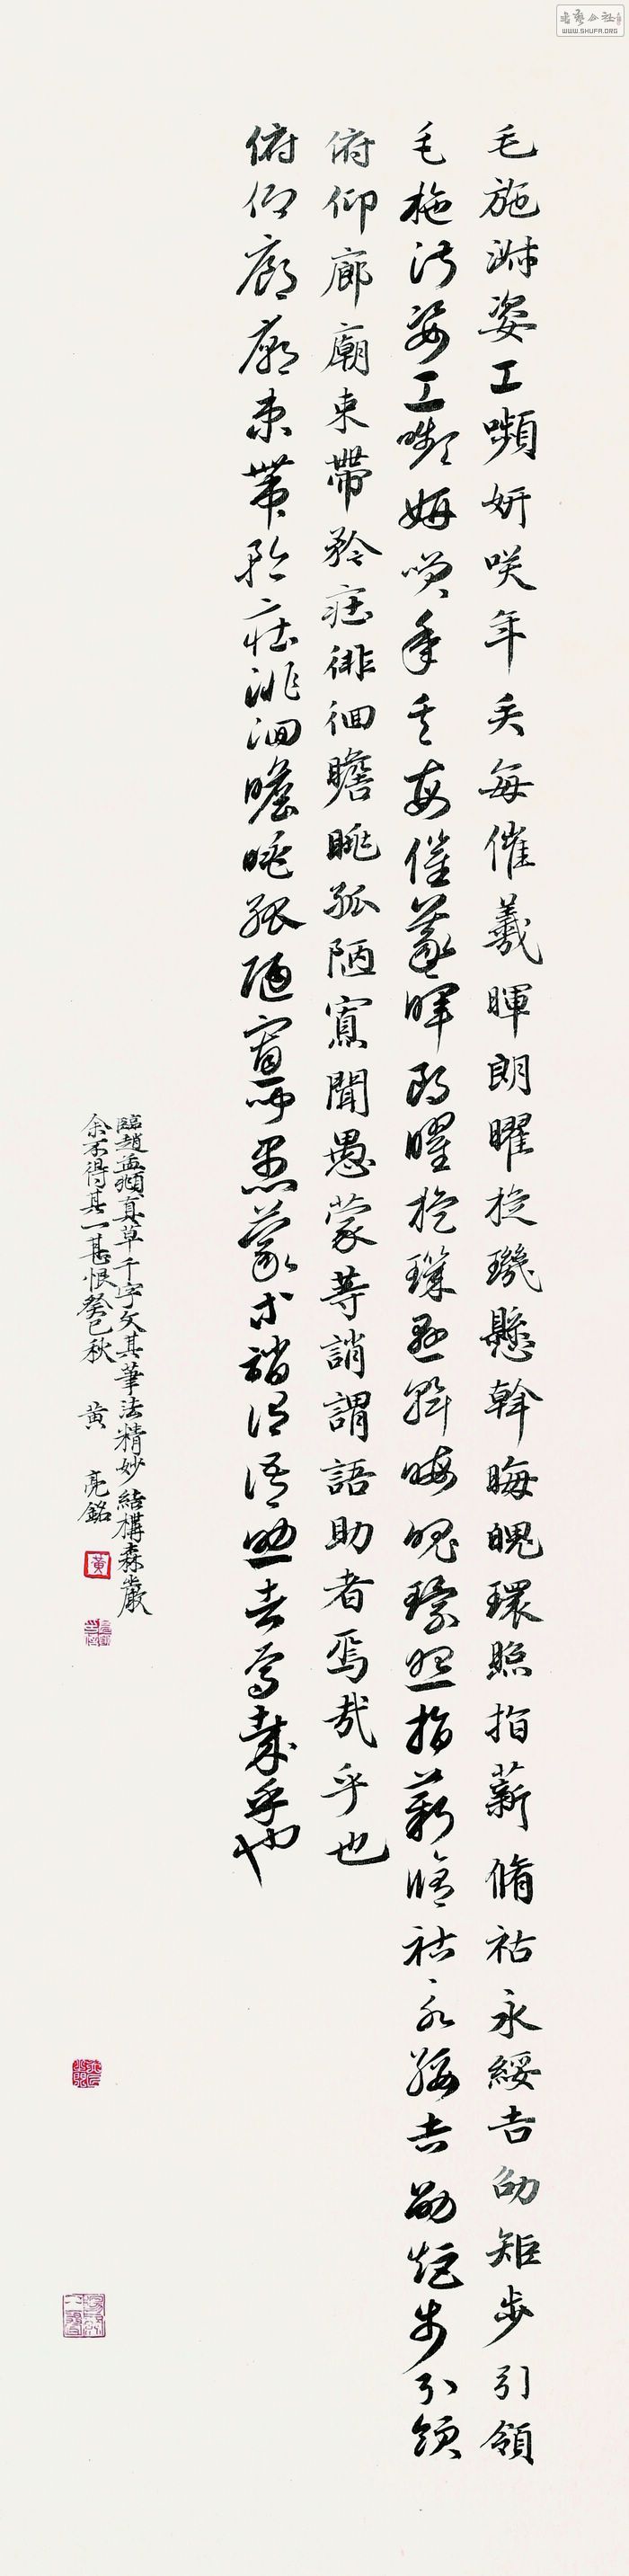 毛施淑姿工嚬妍咲年矢每催羲暉朗曜旋璣懸斡晦魄環照指薪脩祜永綏吉劭矩步引領
毛施淑姿工嚬妍笑年矢每催羲暉朗曜旋璣懸斡晦魄環照指薪脩祜永綏吉劭矩步引領
俯仰廊廟束帶矜莊徘徊瞻眺孤陋寡聞愚蒙等誚謂語助者焉哉乎也
俯仰廊廟束帶矜莊徘徊瞻眺孤陋寡聞愚蒙等誚謂語助者焉哉乎也
臨趙孟頫真草千字文其筆法精妙結構森嚴
余不得其一甚恨癸巳秋 黄亮銘
黃
書藝公社
WWW.SHUFA.ORG